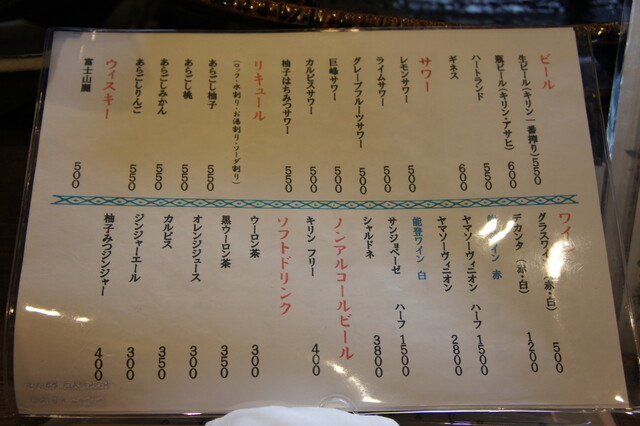 ビール
生ビール(キリン一番搾り) 550
瓶ビール(キリン・アサヒ) 600
ハートランド 550
ギネス 600
サワー
レモンサワー 500
ライムサワー 500
グレープフルーツサワー 500
巨峰サワー 500
カルピスサワー 500
柚子はちみつサワー 550
リキュール
(ロック・水割り・お湯割り・ソーダ割り)
あらごし柚子 550
あらごし桃 550
あらごしみかん 550
あらごしりんご 550
ウィスキー
富士山麓 500
ワイン
グラスワイン(赤・白) 500
デカンタ(赤・白) 1200
ワイン 赤
ヤマソーヴィニオン ハーフ 1500
ヤマソーヴィニオン 2800
能登ワイン 白
サンジョベーゼ ハーフ 1500
シャルドネ 3800
ノンアルコールビール
キリン フリー 400
ソフトドリンク
ウーロン茶 300
黒ウーロン茶 350
オレンジジュース 300
カルピス 350
ジンジャーエール 300
柚子みつジンジャー 400